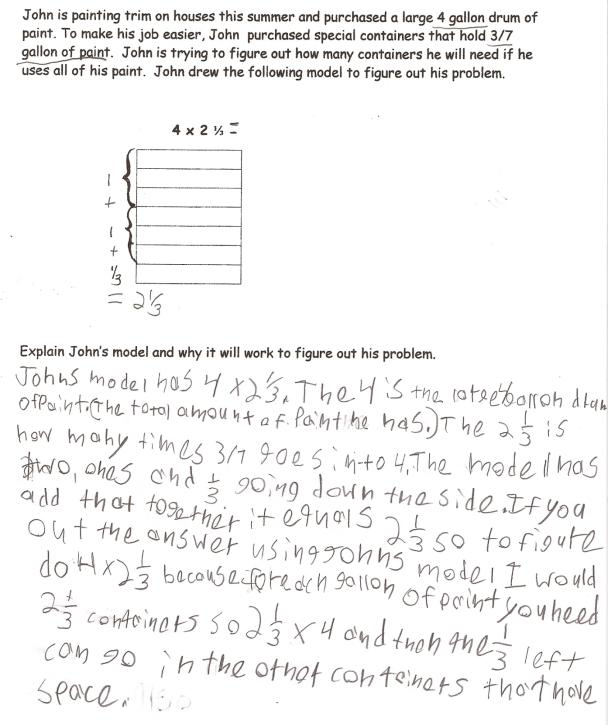 John is painting trim on houses this summer and purchased a large 4 gallon drum of
paint. To make his job easier, John purchased special containers that hold 3/7
gallon of paint. John is trying to figure out how many containers he will need if he
uses all of his paint. John drew the following model to figure out his problem.
4 x 2 ⅓ =
1
+
1
+
⅓
= 2⅓
Explain John's model and why it will work to figure out his problem.
Johns model has 4 x 2⅓. The 4 is the
of Paint. (The total amount of Paint he has.) The 2 ⅓ is
how many times 3/7 goes in to 4, The model has
two, ones and ⅓ going down the side. If you
add that together it equals 2⅓ so to figure
out the answer using Johns model I would
do 4 x 2⅓ because for each gallon of paint you need
2⅓ containers so 2⅓ x 4 and then the ⅓ left
can go in the other containers that have
space.